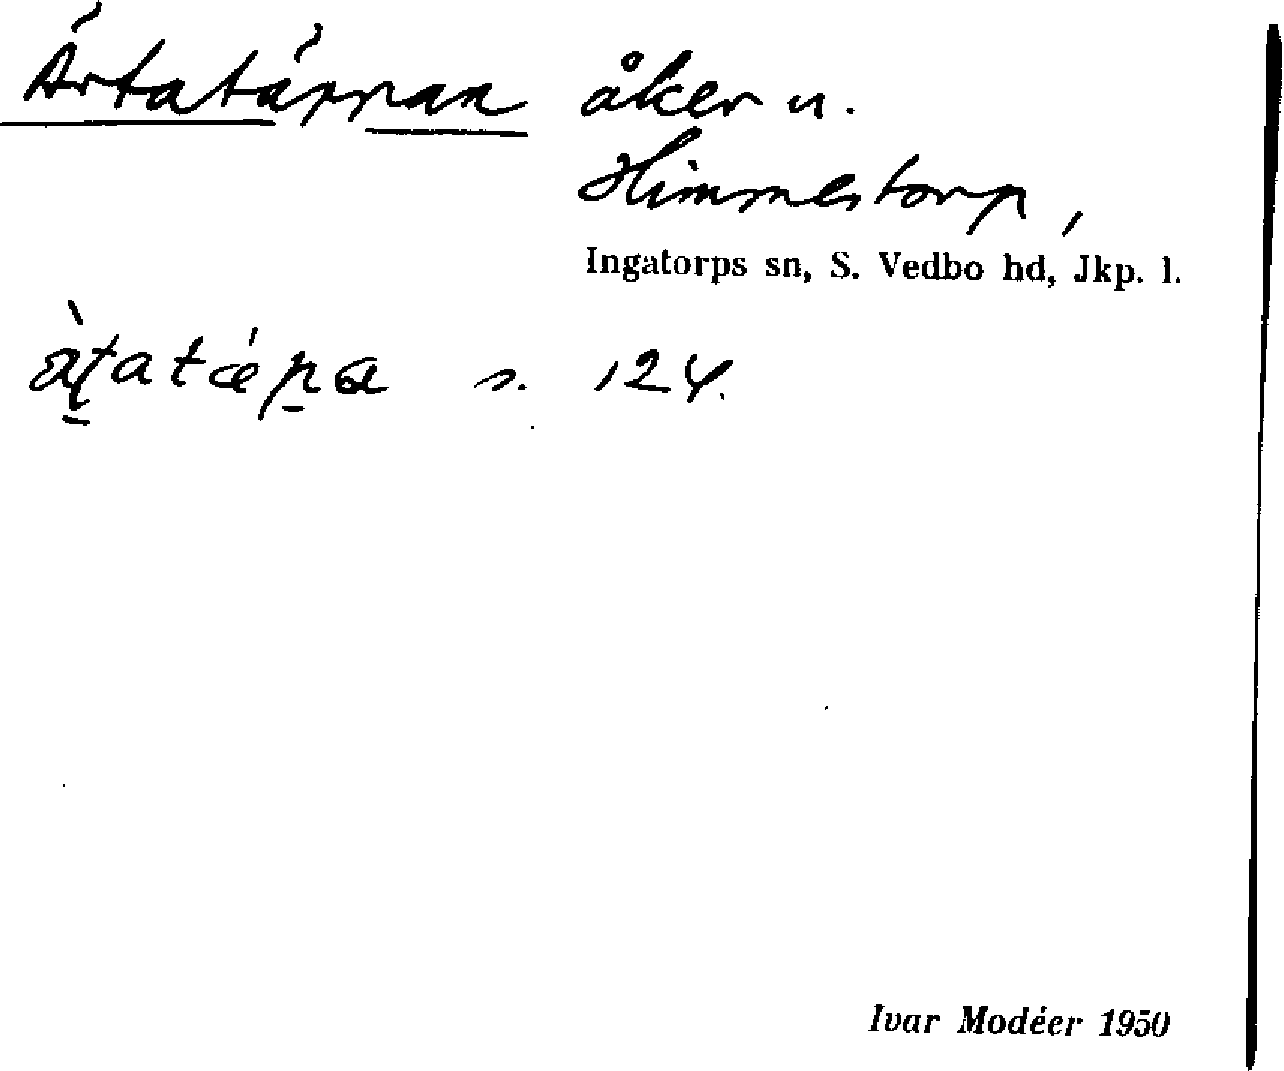 Ärtatäppan åker u.
Himmestorp,
Ingatorps sn, S. Vedbo hd, Jkp. l.
s. 124.
Ivar Modéer 1950